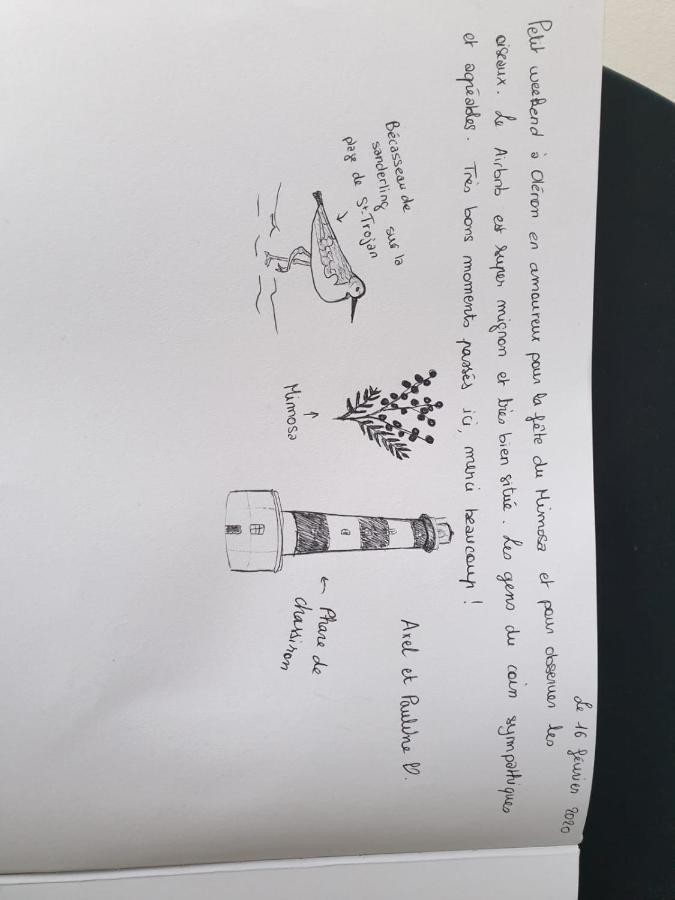 Le 16 février 2020
Petit weekend à Oléron en amoureux pour la fête du Mimosa et pour observer les
oiseaux. Le Airbnb est super mignon et très bien situé. Les gens du coin sympathiques
et agréables. Très bons moments passés ici, merci beaucoup !
Axel et Pauline D.
Bécasseau de
sanderling sur la
plage de St-Trojan
Mimosa
Phare de
chassiron